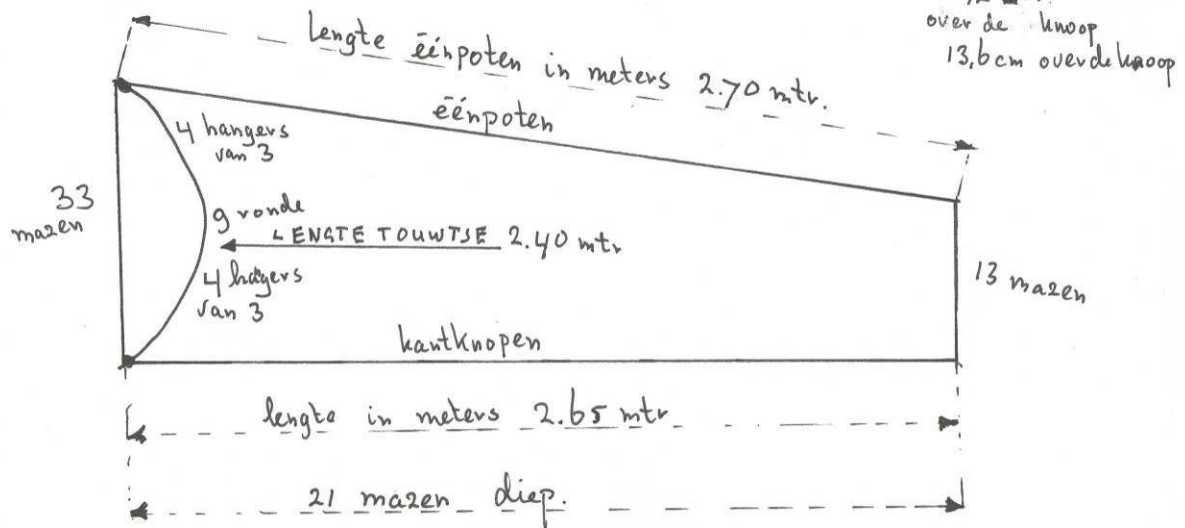 over de knoop
13,6 cm over de knoop
lengte éénpoten in meters 2.70 mtr.
éénpoten
4 hangers
van 3
33
mazen
9 ronde
LENGTE TOUWTSE 2.40 mtr
4 hagers
van 3
13 mazen
kantknopen
lengte in meters 2.65 mtr
21 mazen diep.